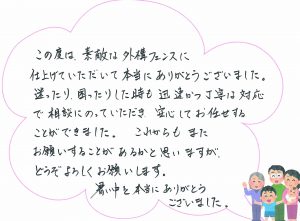 この度は、素敵な外構フェンスに
仕上げていただいて本当にありがとうございました。
迷ったり、困ったりした時も迅速かつ丁寧な対応
で相談にのっていただき、安心してお任せする
ことができました。これからもまた
お願いすることがあるかと思いますが、
どうぞよろしくお願いします。
暑い中を本当にありがとう
ございました。